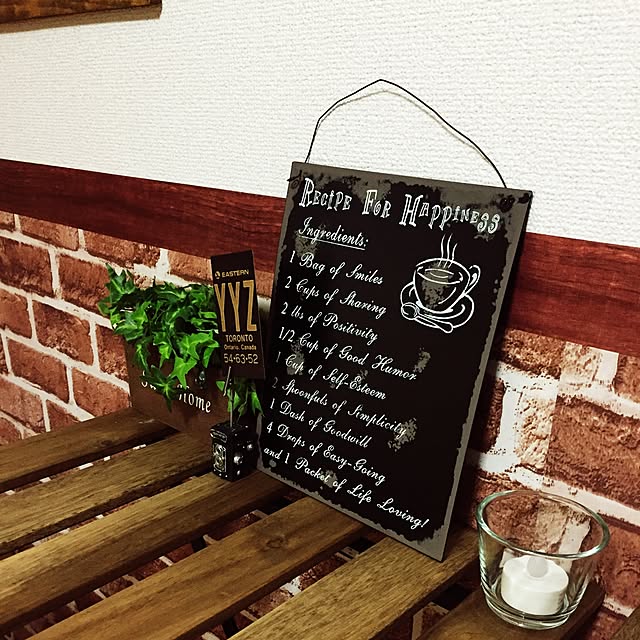 RECIPE FOR HAPPINESS
Ingredients:
1 Bag of Smiles
2 Cups of Sharing
2 lbs of Positivity
1/2 Cup of Good Humor
1 Cup of Self-Esteem
2 Spoonfuls of Simplicity
1 Dash of Goodwill
4 Drops of Easy-Going
and 1 Packet of Life Loving!
EASTERN
YYZ
TORONTO
Ontario, Canada
54-63-52
Home